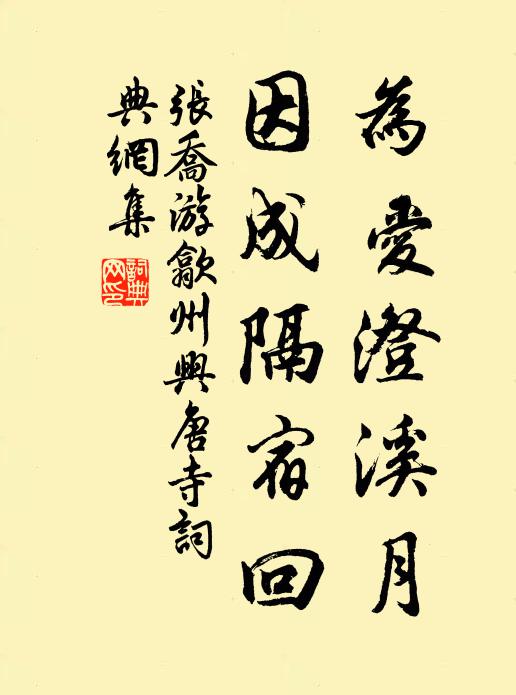 為愛澄溪月
因成隔宿回
張喬游歙州興唐寺詞
典網集
詞典
网印